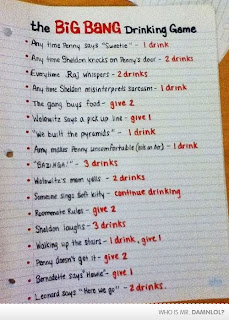 the BIG BANG Drinking Game
• Any time Penny says "Sweetie" - 1 drink
• Any time Sheldon knocks on Penny's door - 2 drinks
• Everytime Raj whispers - 2 drinks
• Any time Sheldon misinterprets sarcasm - 1 drink
• The gang buys food - give 2
• Wolowitz says a pick up line - give 1
• "We built the pyramids" - 1 drink
• Amy makes Penny uncomfortable (hits on her) - 1 drink
• "BAZINGA!" - 3 drinks
• Wolowitz's mom yells - 2 drinks
• Someone sings Soft Kitty - continue drinking
• Roommate Rules - give 2
• Sheldon laughs - 3 drinks
• Walking up the stairs - 1 drink, give 1
• Penny doesn't get it - give 2
• Bernadette says "Howie" - give 1
• Leonard says "Here we go" - 2 drinks.
WHO IS MR. DAMNLOL?